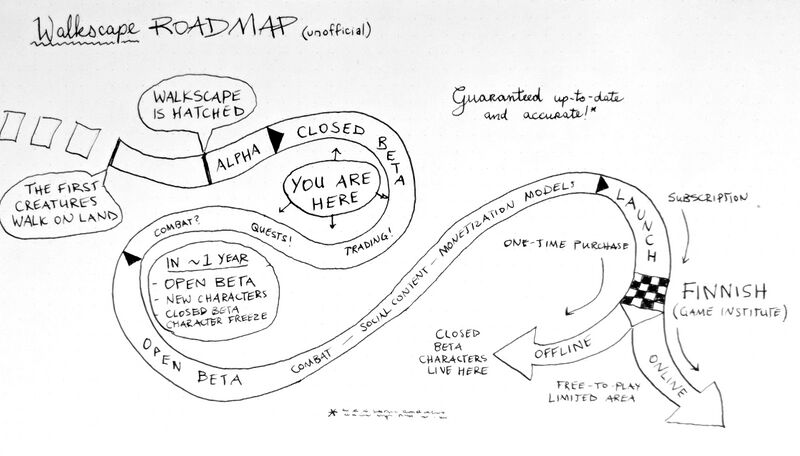 Walkscape ROADMAP (unofficial)
WALKSCAPE
IS HATCHED
Guaranteed up-to-date
and accurate!*
THE FIRST
CREATURES
WALK ON LAND
ALPHA
CLOSED BETA
YOU ARE
HERE
TRADING!
QUESTS!
COMBAT?
IN ~1 YEAR
- OPEN BETA
- NEW CHARACTERS
- CLOSED BETA
CHARACTER FREEZE
OPEN BETA
COMBAT – SOCIAL CONTENT – MONETIZATION MODELS
LAUNCH
SUBSCRIPTION
ONE-TIME PURCHASE
FINNISH
(GAME INSTITUTE)
OFFLINE
CLOSED
BETA
CHARACTERS
LIVE HERE
ONLINE
FREE-TO-PLAY
LIMITED AREA
*